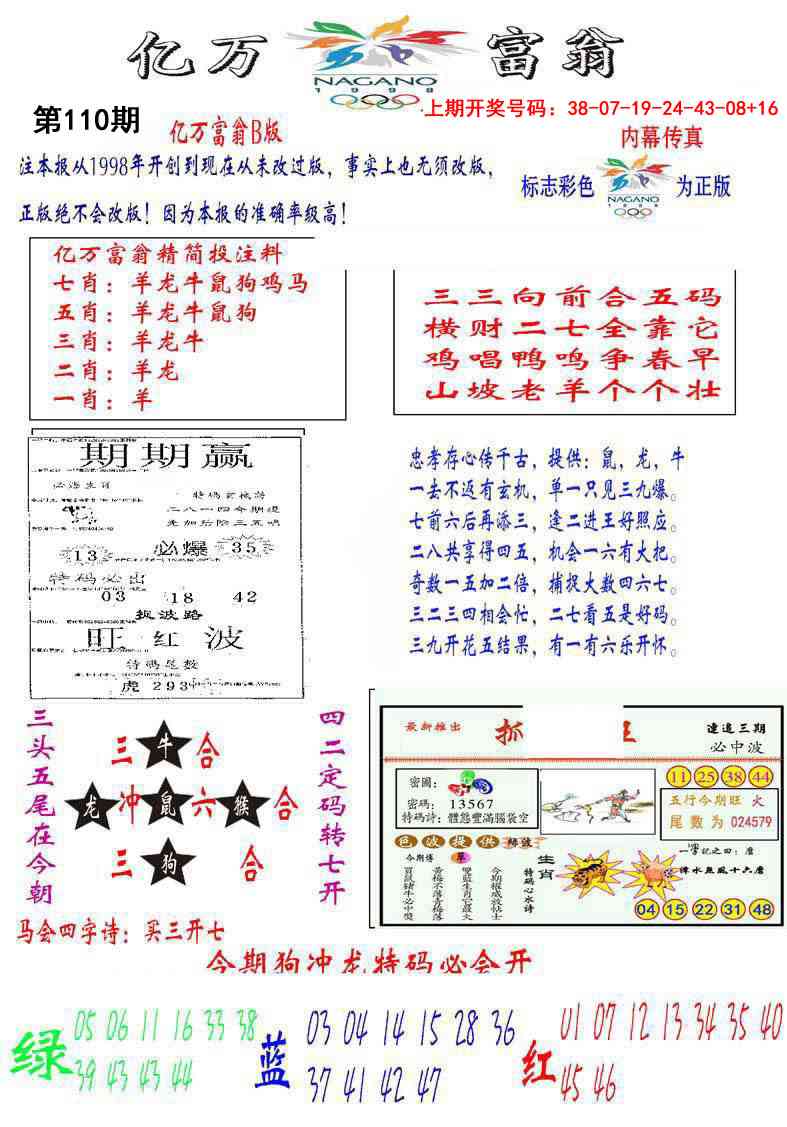 亿万富翁
NAGANO
1998
第110期
亿万富翁B版
上期开奖号码：38-07-19-24-43-08+16
内幕传真
注本报从1998年开创到现在从未改过版，事实上也无须改版，
正版绝不会改版！因为本报的准确率级高！
标志彩色
NAGANO
1998
为正版
亿万富翁精简投注料
七肖：羊龙牛鼠狗鸡马
五肖：羊龙牛鼠狗
三肖：羊龙牛
二肖：羊龙
一肖：羊
三三向前合五码
横财二七全靠它
鸡唱鸭鸣争春早
山坡老羊个个壮
期期赢
二八一四今期提
先加后除三五唱
13
必爆
35
特码必出
03 18 42
捉波路
旺红波
特码尾数
虎 293
忠孝存心传千古，提供：鼠，龙，牛
一去不返有玄机，单一只见三九爆。
七前六后再添三，逢二进王好照应。
二八共享得四五，机会一六有火把。
奇数一五加二倍，捕捉大数四六七。
三二三四相会忙，二七看五是好码。
三九开花五结果，有一有六乐开怀。
三头五尾在今朝
三牛合
龙冲鼠六猴合
三狗合
四二定码转七开
马会四字诗：买三开七
最新推出
抓
连追三期
必中波
密圖：
密碼：13567
特碼詩：體態豐滿腦袋空
11 25 38 44
五行今期旺 火
尾數为 024579
色波提供 綠波
今期博
草
買鼠豬牛必中獎
黃梅不落青梅落
雙藍生肖它最火
今期報成放帖士
特碼心水诗
生肖
一字記之曰：磨
04 15 22 31 48
今期狗冲龙特码必会开
绿
05 06 11 16 33 38
39 43 43 44
蓝
03 04 14 15 28 36
37 41 42 47
红
01 07 12 13 34 35 40
45 46